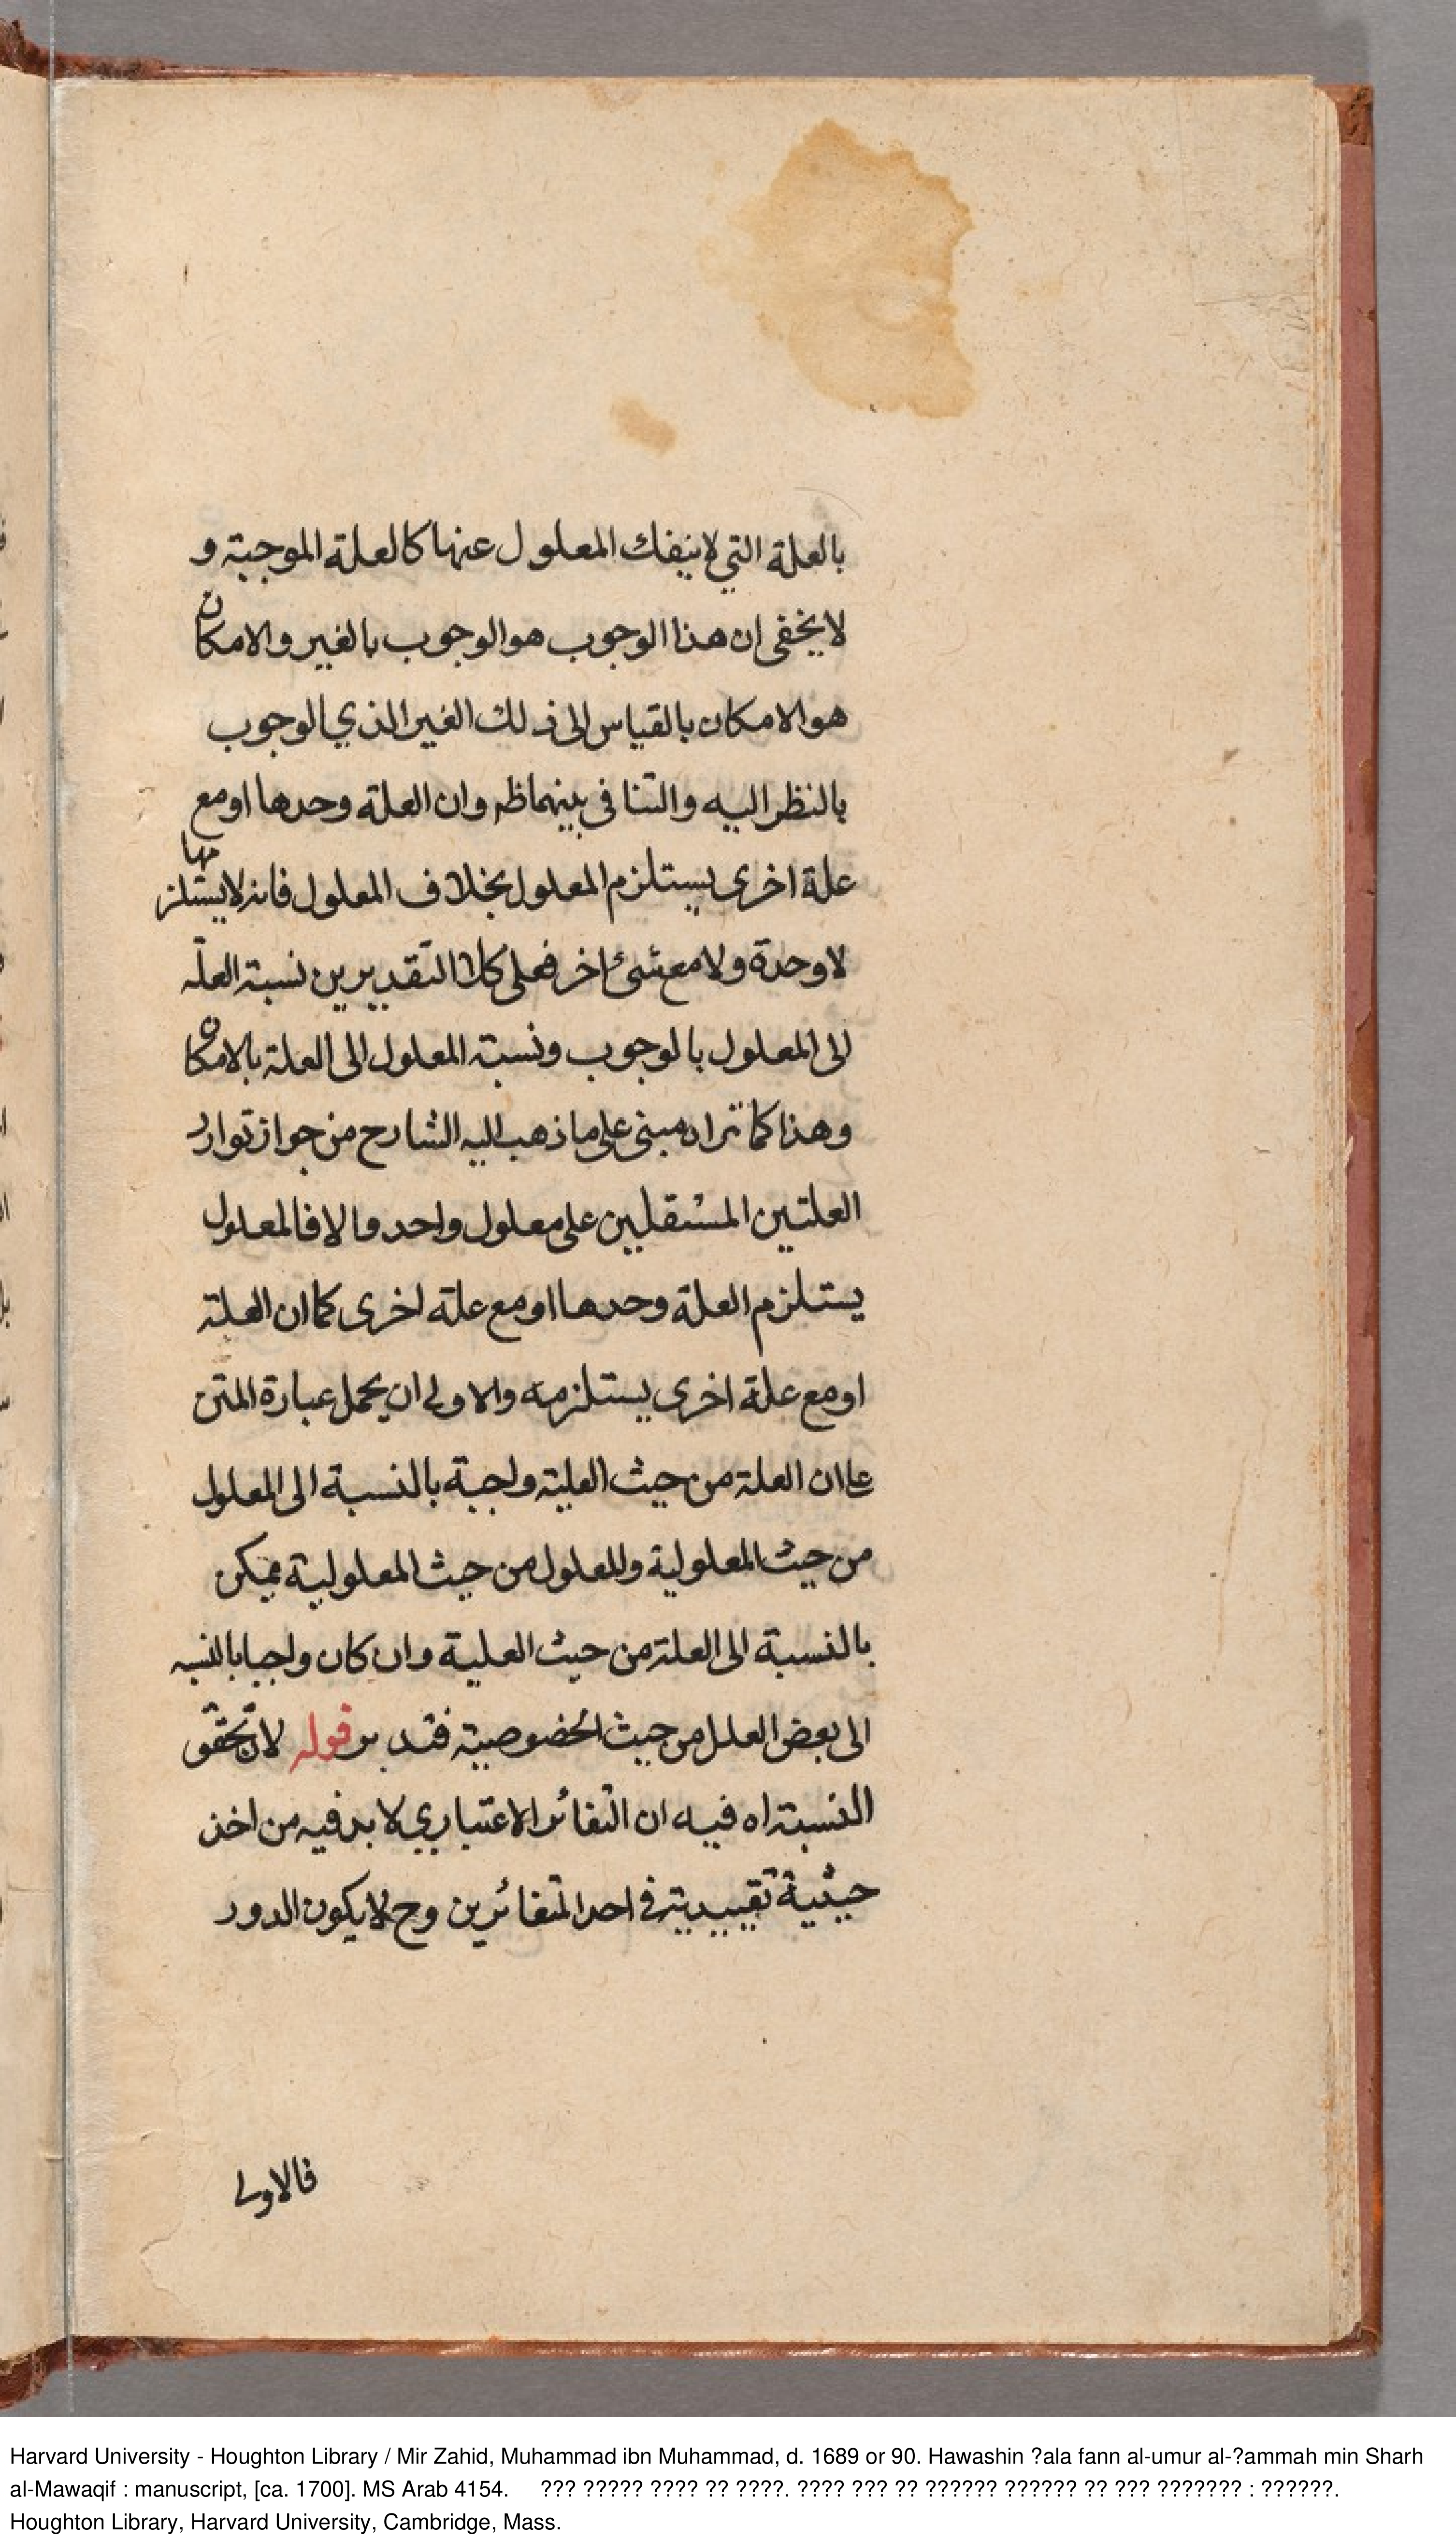 بالعلة التي لا ينفك المعلول عنها كالعلة الموجبة و
لا يخفى ان هذا الوجوب هو الوجوب بالغير والامكان
هو الامكان بالقياس الى ذلك الغير الذي الوجوب
بالنظر اليه والتنافي بينهما ظه وان العلة وحدها او مع
علة اخرى يستلزم المعلول بخلاف المعلول فانه لا يستلزمها
لا وحدة ولا مع شئ اخر فعلى كلا التقديرين نسبة العلة
الى المعلول بالوجوب ونسبة المعلول الى العلة بالامكان
وهذا كما تراه مبنى على ما ذهب اليه الشارح من جواز توارد
العلتين المستقلين على معلول واحد والا فالمعلول
يستلزم العلة وحدها او مع علة اخرى كما ان العلة
او مع علة اخرى يستلزمه والاولى ان يحمل عبارة المتن
على ان العلة من حيث العلية واجبة بالنسبة الى المعلول
من حيث المعلولية والمعلول من حيث المعلولية ممكن
بالنسبة الى العلة من حيث العلية وان كان واجبا بالنسبه
الى بعض العلل من حيث الخصوصية فتدبر قوله لان تحقق
النسبة اه فيه ان التغائر الاعتباري لا بد فيه من اخذ
حيثية تقييدية في احد المتغائرين وح لا يكون الدور
فالاولى
Harvard University - Houghton Library / Mir Zahid, Muhammad ibn Muhammad, d. 1689 or 90. Hawashin ?ala fann al-umur al-?ammah min Sharh
al-Mawaqif : manuscript, [ca. 1700]. MS Arab 4154. ??? ????? ???? ?? ????. ???? ??? ?? ?????? ?????? ?? ??? ??????? : ??????.
Houghton Library, Harvard University, Cambridge, Mass.